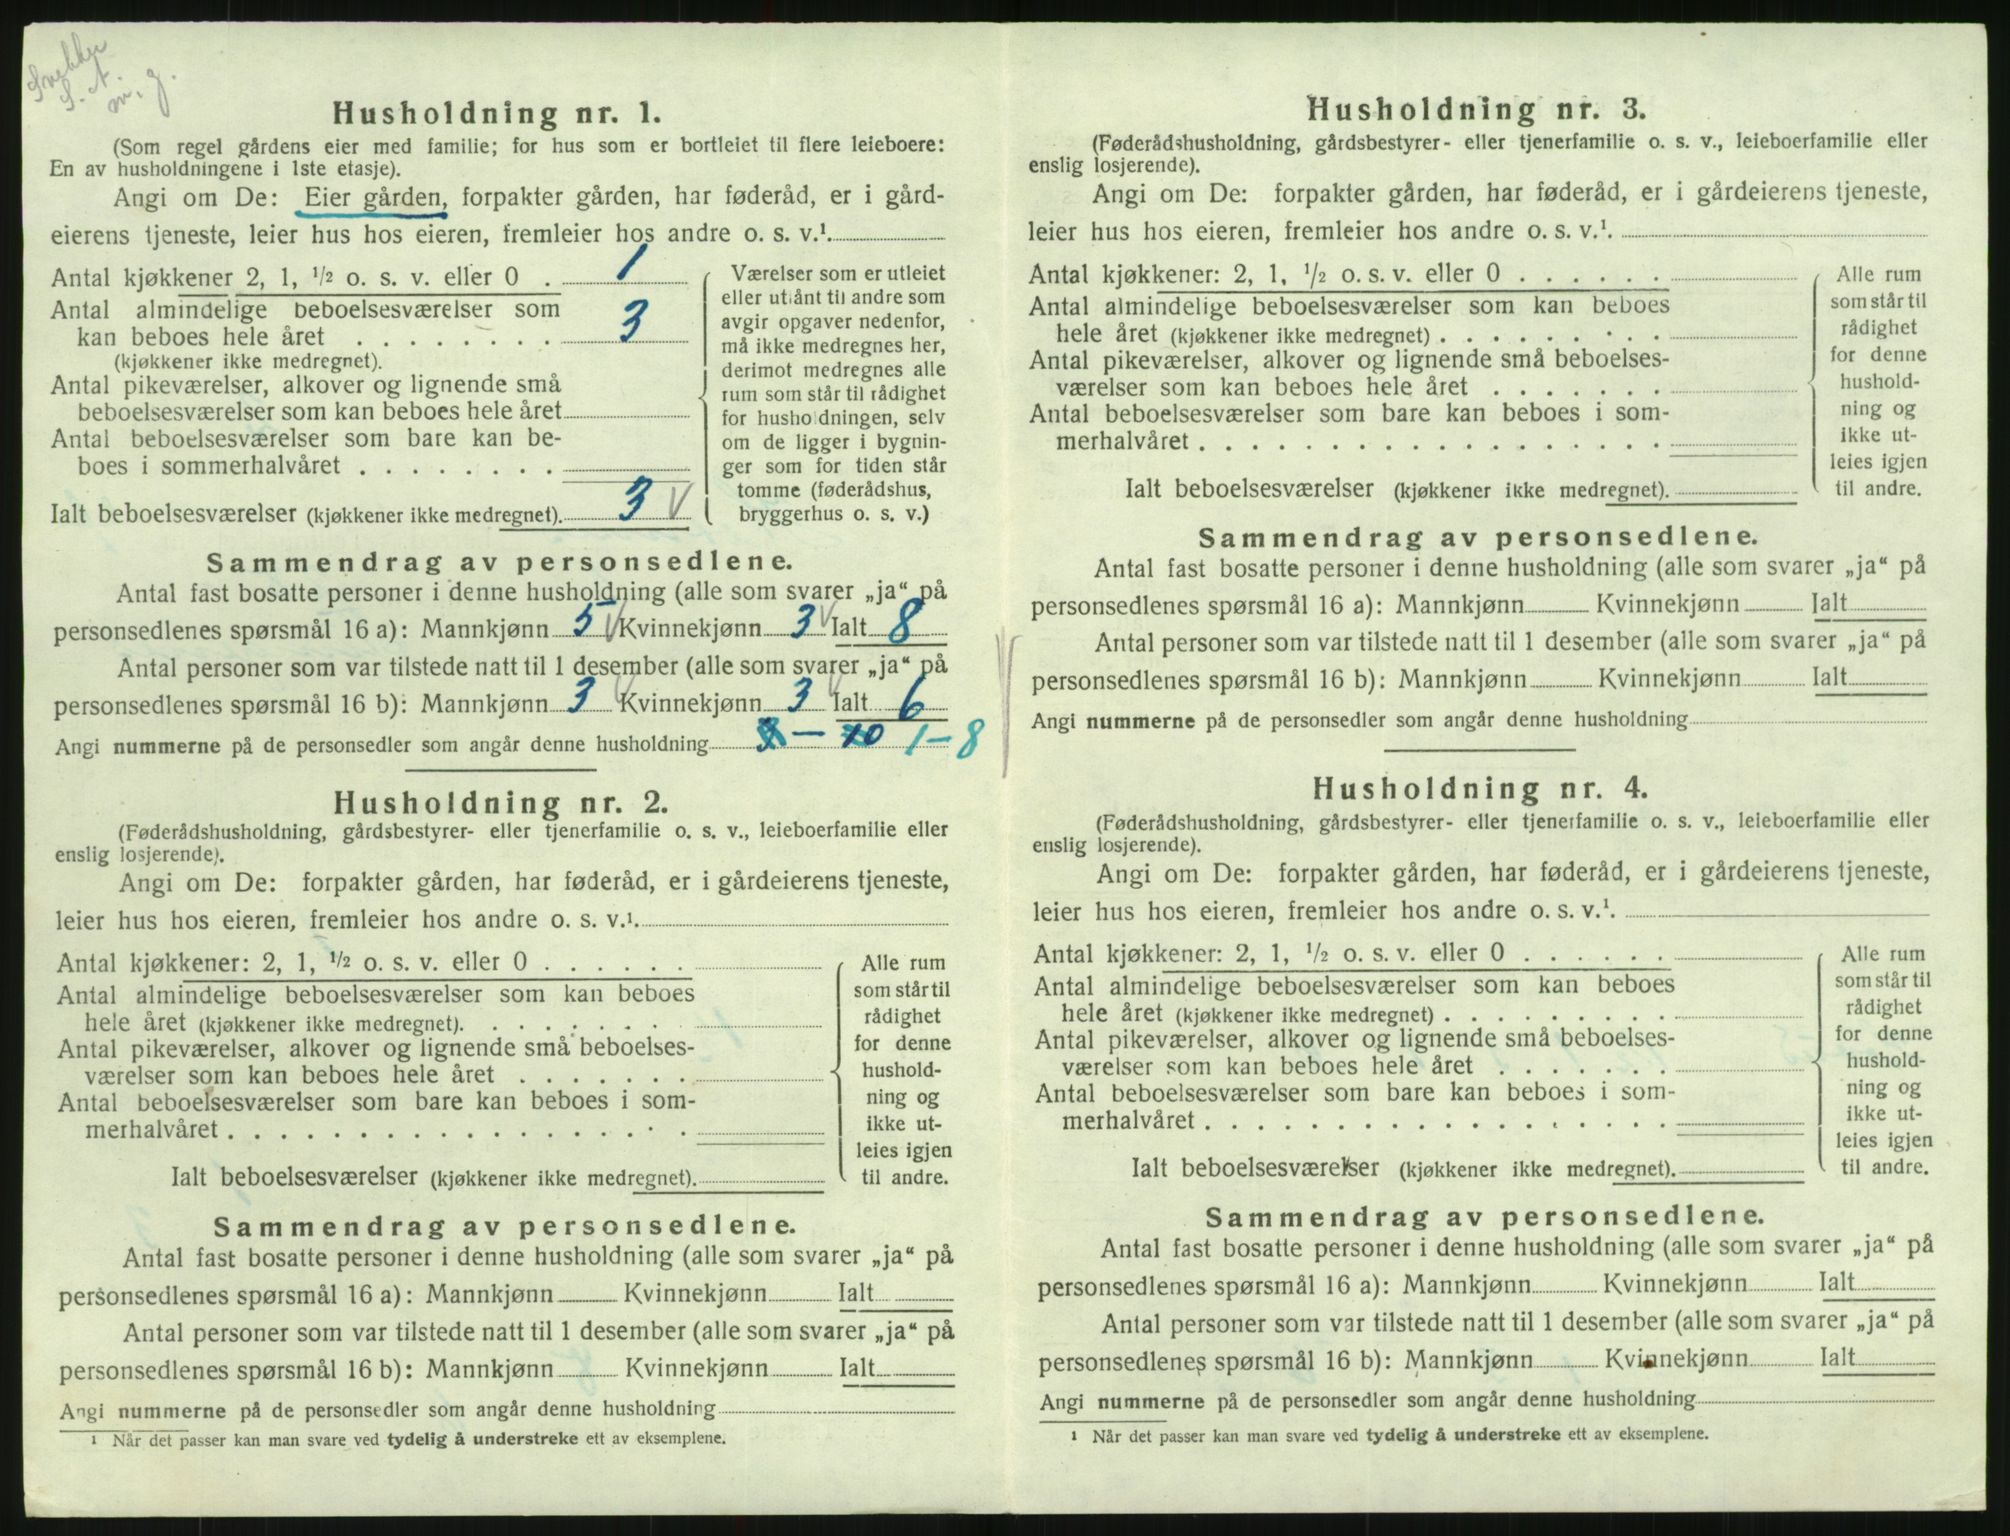 Snekker
S. A.
m. g.
Husholdning nr. 1.
(Som regel gårdens eier med familie; for hus som er bortleiet til flere leieboere:
En av husholdningene i 1ste etasje).
Angi om De: Eier gården, forpakter gården, har føderåd, er i gård-
eierens tjeneste, leier hus hos eieren, fremleier hos andre o. s. v.¹.
Antal kjøkkener 2, 1, ½ o. s. v. eller 0 . 1
Antal almindelige beboelsesværelser som
kan beboes hele året . . . . . . . . 3
(kjøkkener ikke medregnet).
Antal pikeværelser, alkover og lignende små
beboelsesværelser som kan beboes hele året
Antal beboelsesværelser som bare kan be-
boes i sommerhalvåret . . . . . . . .
Ialt beboelsesværelser (kjøkkener ikke medregnet). 3 V
Værelser som er utleiet
eller utlånt til andre som
avgir opgaver nedenfor,
må ikke medregnes her,
derimot medregnes alle
rum som står til rådighet
for husholdningen, selv
om de ligger i bygnin-
ger som for tiden står
tomme (føderådshus,
bryggerhus o. s. v.)
Sammendrag av personsedlene.
Antal fast bosatte personer i denne husholdning (alle som svarer „ja“ på
personsedlenes spørsmål 16 a): Mannkjønn 5 V Kvinnekjønn 3 V Ialt 8
Antal personer som var tilstede natt til 1 desember (alle som svarer „ja“ på
personsedlenes spørsmål 16 b): Mannkjønn 3 V Kvinnekjønn 3 V Ialt 6
Angi nummerne på de personsedler som angår denne husholdning – 10 1–8
Husholdning nr. 2.
(Føderådshusholdning, gårdsbestyrer- eller tjenerfamilie o. s. v., leieboerfamilie eller
enslig losjerende).
Angi om De: forpakter gården, har føderåd, er i gårdeierens tjeneste,
leier hus hos eieren, fremleier hos andre o. s. v.¹.
Antal kjøkkener: 2, 1, ½ o. s. v. eller 0 . . . . . .
Antal almindelige beboelsesværelser som kan beboes
hele året (kjøkkener ikke medregnet). . . . . . . .
Antal pikeværelser, alkover og lignende små beboelses-
værelser som kan beboes hele året . . . . . . .
Antal beboelsesværelser som bare kan beboes i som-
merhalvåret . . . . . . . . . . . . . . . . . .
Ialt beboelsesværelser (kjøkkener ikke medregnet).
Alle rum
som står til
rådighet
for denne
hushold-
ning og
ikke ut-
leies igjen
til andre.
Sammendrag av personsedlene.
Antal fast bosatte personer i denne husholdning (alle som svarer „ja“ på
personsedlenes spørsmål 16 a): Mannkjønn Kvinnekjønn Ialt
Antal personer som var tilstede natt til 1 desember (alle som svarer „ja“ på
personsedlenes spørsmål 16 b): Mannkjønn Kvinnekjønn Ialt
Angi nummerne på de personsedler som angår denne husholdning
¹ Når det passer kan man svare ved tydelig å understreke ett av eksemplene.
Husholdning nr. 3.
(Føderådshusholdning, gårdsbestyrer- eller tjenerfamilie o. s. v., leieboerfamilie eller
enslig losjerende).
Angi om De: forpakter gården, har føderåd, er i gårdeierens tjeneste,
leier hus hos eieren, fremleier hos andre o. s. v.¹.
Antal kjøkkener: 2, 1, ½ o. s. v. eller 0 . . . . . .
Antal almindelige beboelsesværelser som kan beboes
hele året (kjøkkener ikke medregnet) . . . . . . . .
Antal pikeværelser, alkover og lignende små beboelses-
værelser som kan beboes hele året . . . . . . .
Antal beboelsesværelser som bare kan beboes i som-
merhalvåret . . . . . . . . . . . . . . . . . .
Ialt beboelsesværelser (kjøkkener ikke medregnet).
Alle rum
som står til
rådighet
for denne
hushold-
ning og
ikke ut-
leies igjen
til andre.
Sammendrag av personsedlene.
Antal fast bosatte personer i denne husholdning (alle som svarer „ja“ på
personsedlenes spørsmål 16 a): Mannkjønn Kvinnekjønn Ialt
Antal personer som var tilstede natt til 1 desember (alle som svarer „ja“ på
personsedlenes spørsmål 16 b): Mannkjønn Kvinnekjønn Ialt
Angi nummerne på de personsedler som angår denne husholdning
Husholdning nr. 4.
(Føderådshusholdning, gårdsbestyrer- eller tjenerfamilie o. s. v., leieboerfamilie eller
enslig losjerende).
Angi om De: forpakter gården, har føderåd, er i gårdeierens tjeneste,
leier hus hos eieren, fremleier hos andre o. s. v.¹.
Antal kjøkkener: 2, 1, ½ o. s. v. eller 0 . . . . . .
Antal almindelige beboelsesværelser som kan beboes
hele året (kjøkkener ikke medregnet) . . . . . . . .
Antal pikeværelser, alkover og lignende små beboelses-
værelser som kan beboes hele året . . . . . . .
Antal beboelsesværelser som bare kan beboes i som-
merhalvåret . . . . . . . . . . . . . . . . . .
Ialt beboelsesværelser (kjøkkener ikke medregnet).
Alle rum
som står til
rådighet
for denne
hushold-
ning og
ikke ut-
leies igjen
til andre.
Sammendrag av personsedlene.
Antal fast bosatte personer i denne husholdning (alle som svarer „ja“ på
personsedlenes spørsmål 16 a): Mannkjønn Kvinnekjønn Ialt
Antal personer som var tilstede natt til 1 desember (alle som svarer „ja“ på
personsedlenes spørsmål 16 b): Mannkjønn Kvinnekjønn Ialt
Angi nummerne på de personsedler som angår denne husholdning
¹ Når det passer kan man svare ved tydelig å understreke ett av eksemplene.